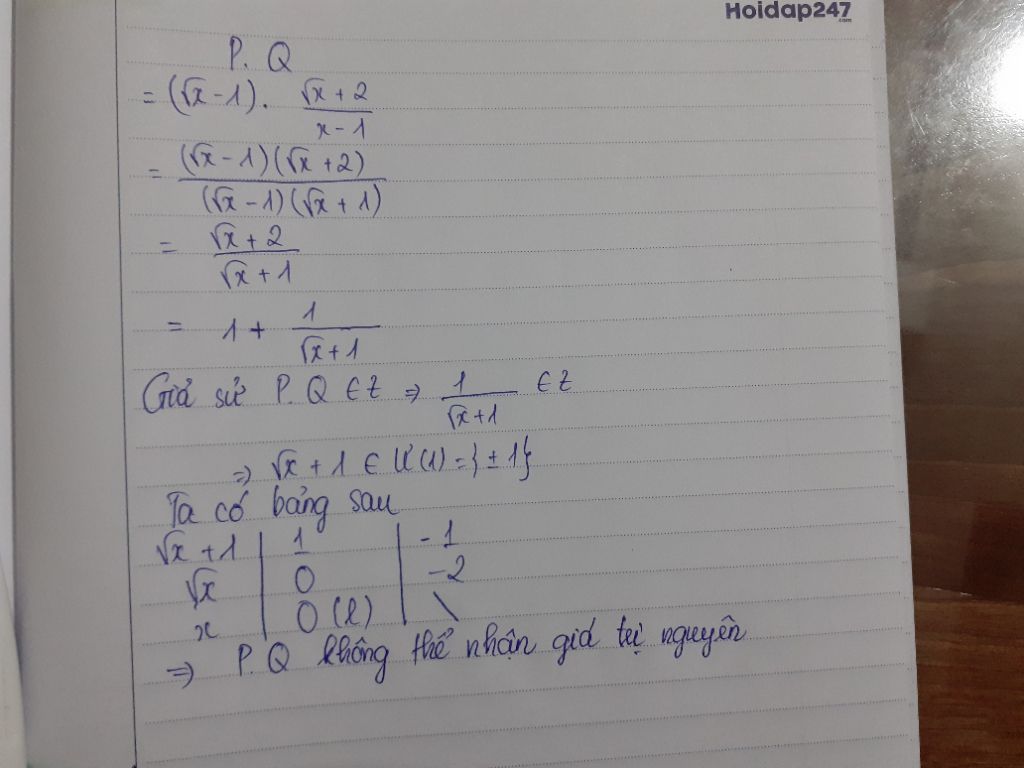 Hoidap247
.com
P. Q
= (√x - 1) . (√x + 2)/(x - 1)
= (√x - 1)(√x + 2)/(√x - 1)(√x + 1)
= (√x + 2)/(√x + 1)
= 1 + 1/(√x + 1)
Giả sử P. Q ∈ Z ⇒ 1/(√x + 1) ∈ Z
⇒ √x + 1 ∈ Ư(1) = {± 1}
Ta có bảng sau
√x + 1 | 1 | - 1
√x | 0 | -2
x | 0 (l) | \
⇒ P. Q không thể nhận giá trị nguyên